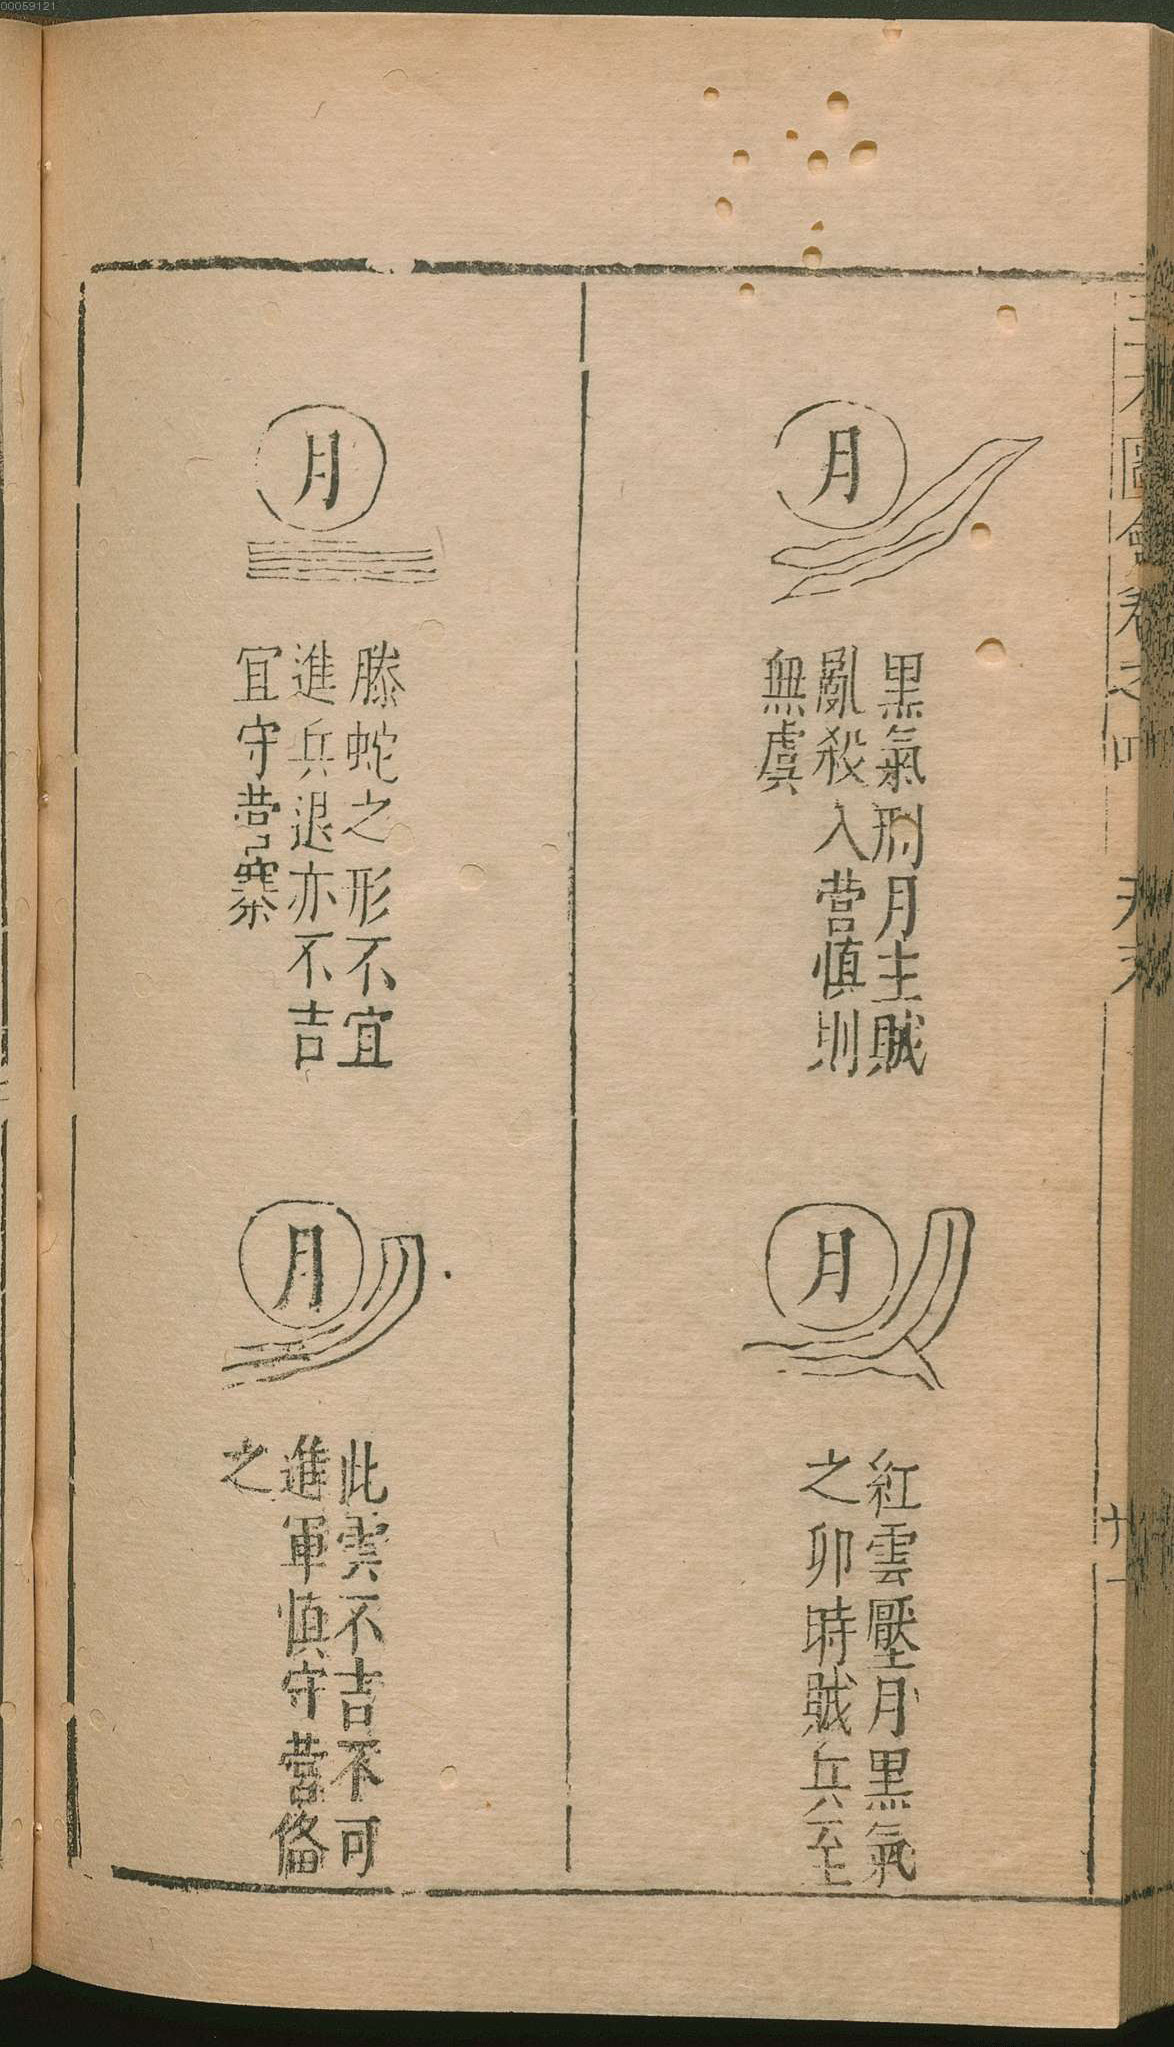 00059121
圖會卷之四
月
黑氣刑月主賊
亂殺入營慎則
無虞
月
紅雲壓月黑氣
之卯時賊兵至
月
騰蛇之形不宜
進兵退亦不吉
宜守營寨
月
此雲不吉不可
進軍慎守營俻
之